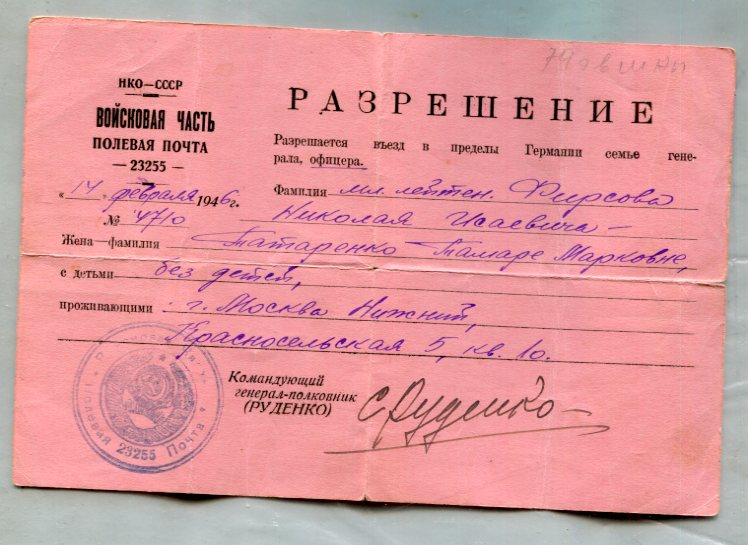 НКО—СССР
ВОЙСКОВАЯ ЧАСТЬ
ПОЛЕВАЯ ПОЧТА
— 23255 —
„14„ февраля 1946г.
№ 4710
РАЗРЕШЕНИЕ
Разрешается въезд в пределы Германии семье гене-
рала, офицера.
Фамилия мл. лейтен. Фирсова
Николая Исаевича —
Жена—фамилия Татаренко — Тамаре Марковне,
с детьми без детей,
проживающими: г. Москва Нижний,
Красносельская 5, кв. 10.
Командующий
генерал-полковник
(РУДЕНКО)
С Руденко
23255 Почта